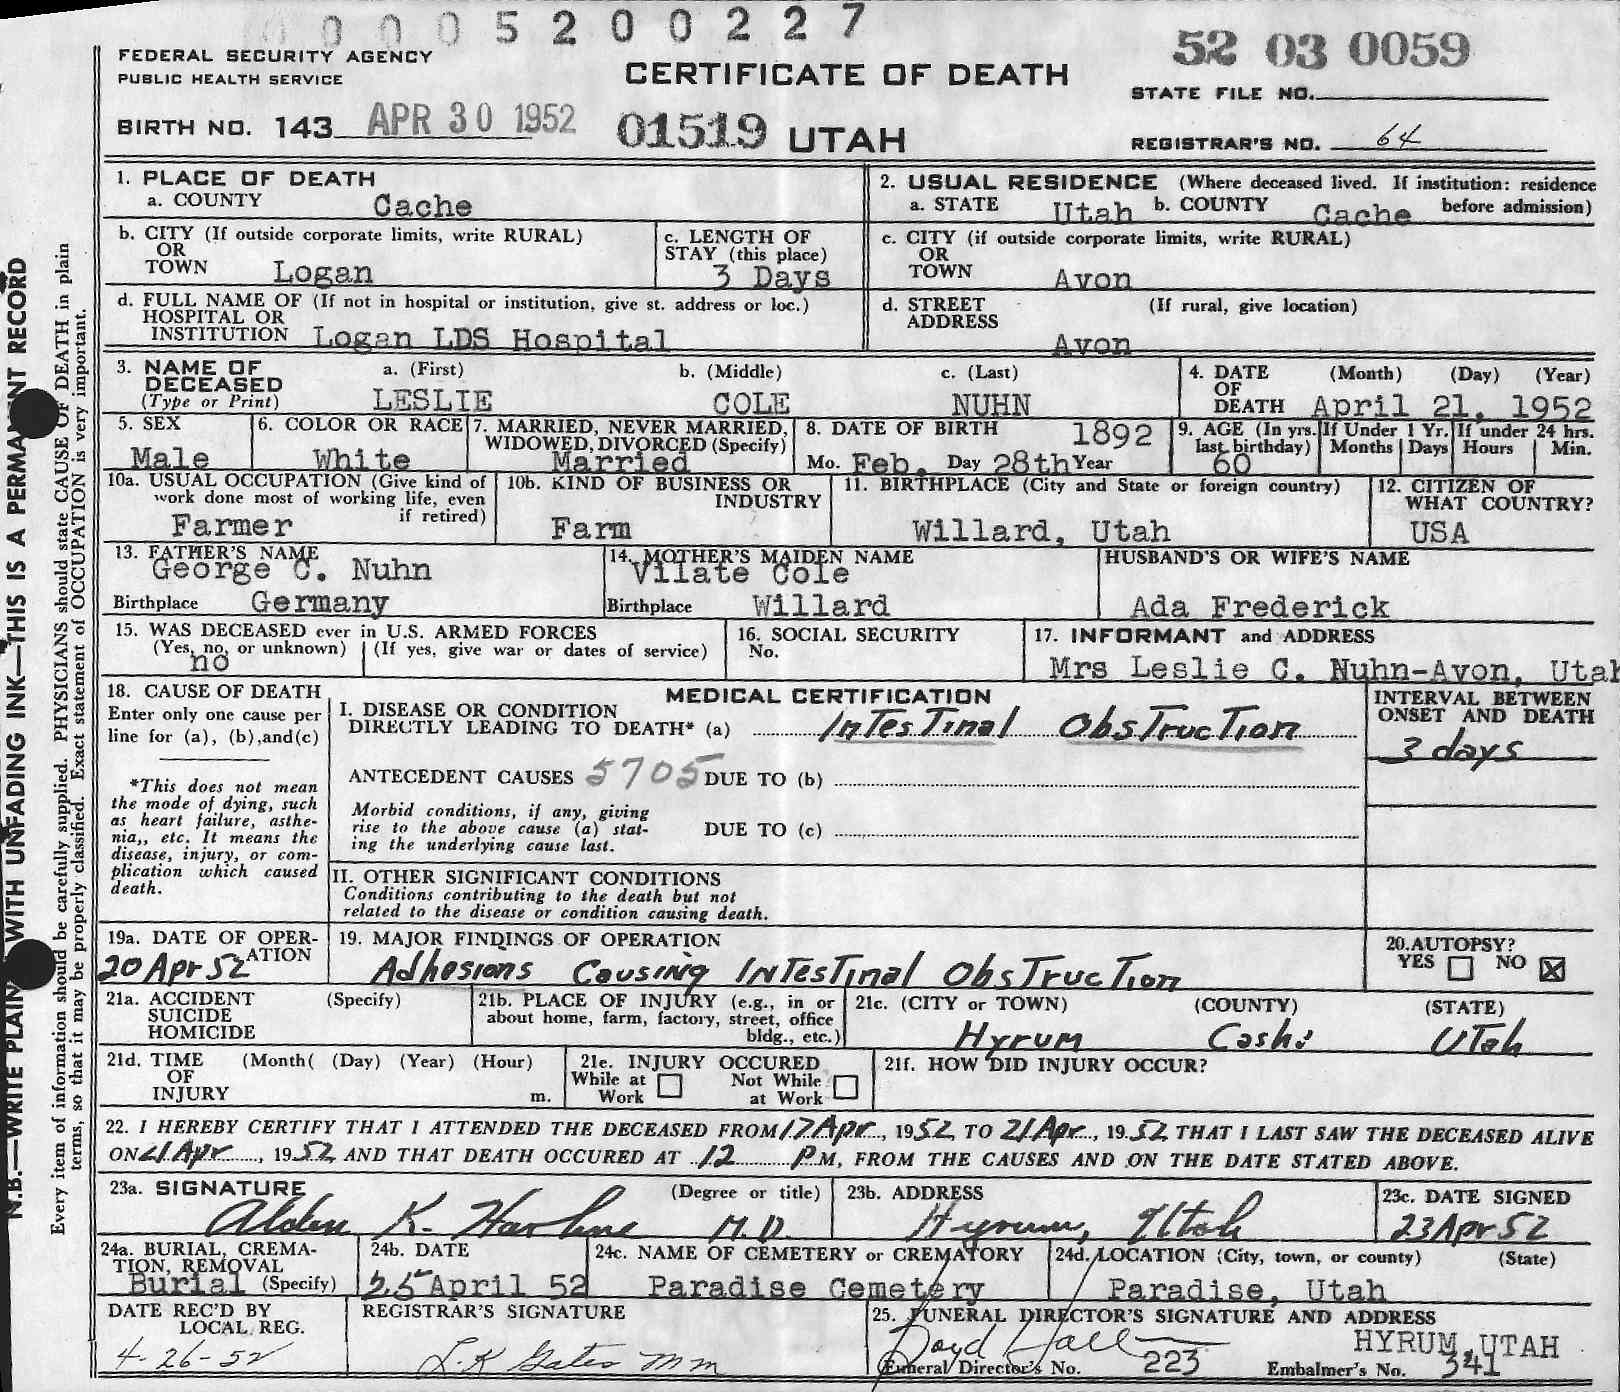 0005200227
FEDERAL SECURITY AGENCY
PUBLIC HEALTH SERVICE
CERTIFICATE OF DEATH
52 03 0059
STATE FILE NO.
BIRTH NO. 143 APR 30 1952 01519 UTAH
REGISTRAR'S NO. 64
1. PLACE OF DEATH
a. COUNTY Cache
2. USUAL RESIDENCE (Where deceased lived. If institution: residence before admission)
a. STATE Utah b. COUNTY Cache
b. CITY (If outside corporate limits, write RURAL)
OR
TOWN Logan
c. LENGTH OF
STAY (this place)
3 Days
c. CITY (if outside corporate limits, write RURAL)
OR
TOWN Avon
d. FULL NAME OF (If not in hospital or institution, give st. address or loc.)
HOSPITAL OR
INSTITUTION Logan LDS Hospital
d. STREET (If rural, give location)
ADDRESS
Avon
3. NAME OF
DECEASED
(Type or Print)
a. (First) b. (Middle) c. (Last)
LESLIE COLE NUHN
4. DATE (Month) (Day) (Year)
OF
DEATH April 21, 1952
5. SEX
Male
6. COLOR OR RACE
White
7. MARRIED, NEVER MARRIED,
WIDOWED, DIVORCED (Specify)
Married
8. DATE OF BIRTH 1892
Mo. Feb. Day 28th Year
9. AGE (In yrs. last birthday)
60
If Under 1 Yr.
Months Days
If under 24 hrs.
Hours Min.
10a. USUAL OCCUPATION (Give kind of
work done most of working life, even
if retired)
Farmer
10b. KIND OF BUSINESS OR
INDUSTRY
Farm
11. BIRTHPLACE (City and State or foreign country)
Willard, Utah
12. CITIZEN OF
WHAT COUNTRY?
USA
13. FATHER'S NAME
George C. Nuhn
Birthplace Germany
14. MOTHER'S MAIDEN NAME
Vilate Cole
Birthplace Willard
HUSBAND'S OR WIFE'S NAME
Ada Frederick
15. WAS DECEASED ever in U.S. ARMED FORCES
(Yes, no, or unknown) (If yes, give war or dates of service)
no
16. SOCIAL SECURITY
No.
17. INFORMANT and ADDRESS
Mrs Leslie C. Nuhn-Avon, Utah
18. CAUSE OF DEATH
Enter only one cause per
line for (a), (b), and(c)
*This does not mean
the mode of dying, such
as heart failure, asthe-
nia,, etc. It means the
disease, injury, or com-
plication which caused
death.
MEDICAL CERTIFICATION
I. DISEASE OR CONDITION
DIRECTLY LEADING TO DEATH* (a) Intestinal Obstruction
ANTECEDENT CAUSES 5705 DUE TO (b)
Morbid conditions, if any, giving
rise to the above cause (a) stat-
ing the underlying cause last.
DUE TO (c)
II. OTHER SIGNIFICANT CONDITIONS
Conditions contributing to the death but not
related to the disease or condition causing death.
INTERVAL BETWEEN
ONSET AND DEATH
3 days
19a. DATE OF OPER-
ATION
20 Apr 52
19. MAJOR FINDINGS OF OPERATION
Adhesions Causing Intestinal Obstruction
20. AUTOPSY?
YES NO
21a. ACCIDENT (Specify)
SUICIDE
HOMICIDE
21b. PLACE OF INJURY (e.g., in or
about home, farm, factory, street, office
bldg., etc.)
21c. (CITY or TOWN) (COUNTY) (STATE)
Hyrum Cache Utah
21d. TIME (Month( (Day) (Year) (Hour)
OF
INJURY m.
21e. INJURY OCCURED
While at Work Not While at Work
21f. HOW DID INJURY OCCUR?
22. I HEREBY CERTIFY THAT I ATTENDED THE DECEASED FROM 17 Apr, 1952 TO 21 Apr, 1952 THAT I LAST SAW THE DECEASED ALIVE
ON 21 Apr, 1952 AND THAT DEATH OCCURED AT 12 P M, FROM THE CAUSES AND ON THE DATE STATED ABOVE.
23a. SIGNATURE (Degree or title)
Alden K. M.D.
23b. ADDRESS
Hyrum, Utah
23c. DATE SIGNED
23 Apr 52
24a. BURIAL, CREMA-
TION, REMOVAL
Burial (Specify)
24b. DATE
25 April 52
24c. NAME OF CEMETERY or CREMATORY
Paradise Cemetery
24d. LOCATION (City, town, or county) (State)
Paradise, Utah
DATE REC'D BY
LOCAL REG.
4-26-52
REGISTRAR'S SIGNATURE
25. FUNERAL DIRECTOR'S SIGNATURE AND ADDRESS
Boyd Hall
HYRUM, UTAH
Funeral Director's No. 223 Embalmer's No. 341
N.B.—WRITE PLAINLY WITH UNFADING INK—THIS IS A PERMANENT RECORD
Every item of information should be carefully supplied. PHYSICIANS should state CAUSE OF DEATH in plain
terms, so that it may be properly classified. Exact statement of OCCUPATION is very important.